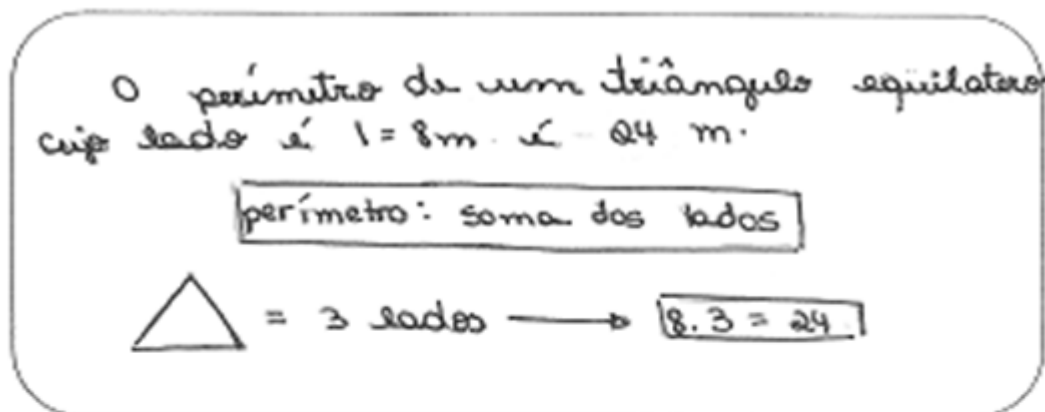 O perímetro de um triângulo equilatero
cujo lado é l = 8m é 24 m.
perímetro: soma dos lados
= 3 lados → 8.3 = 24